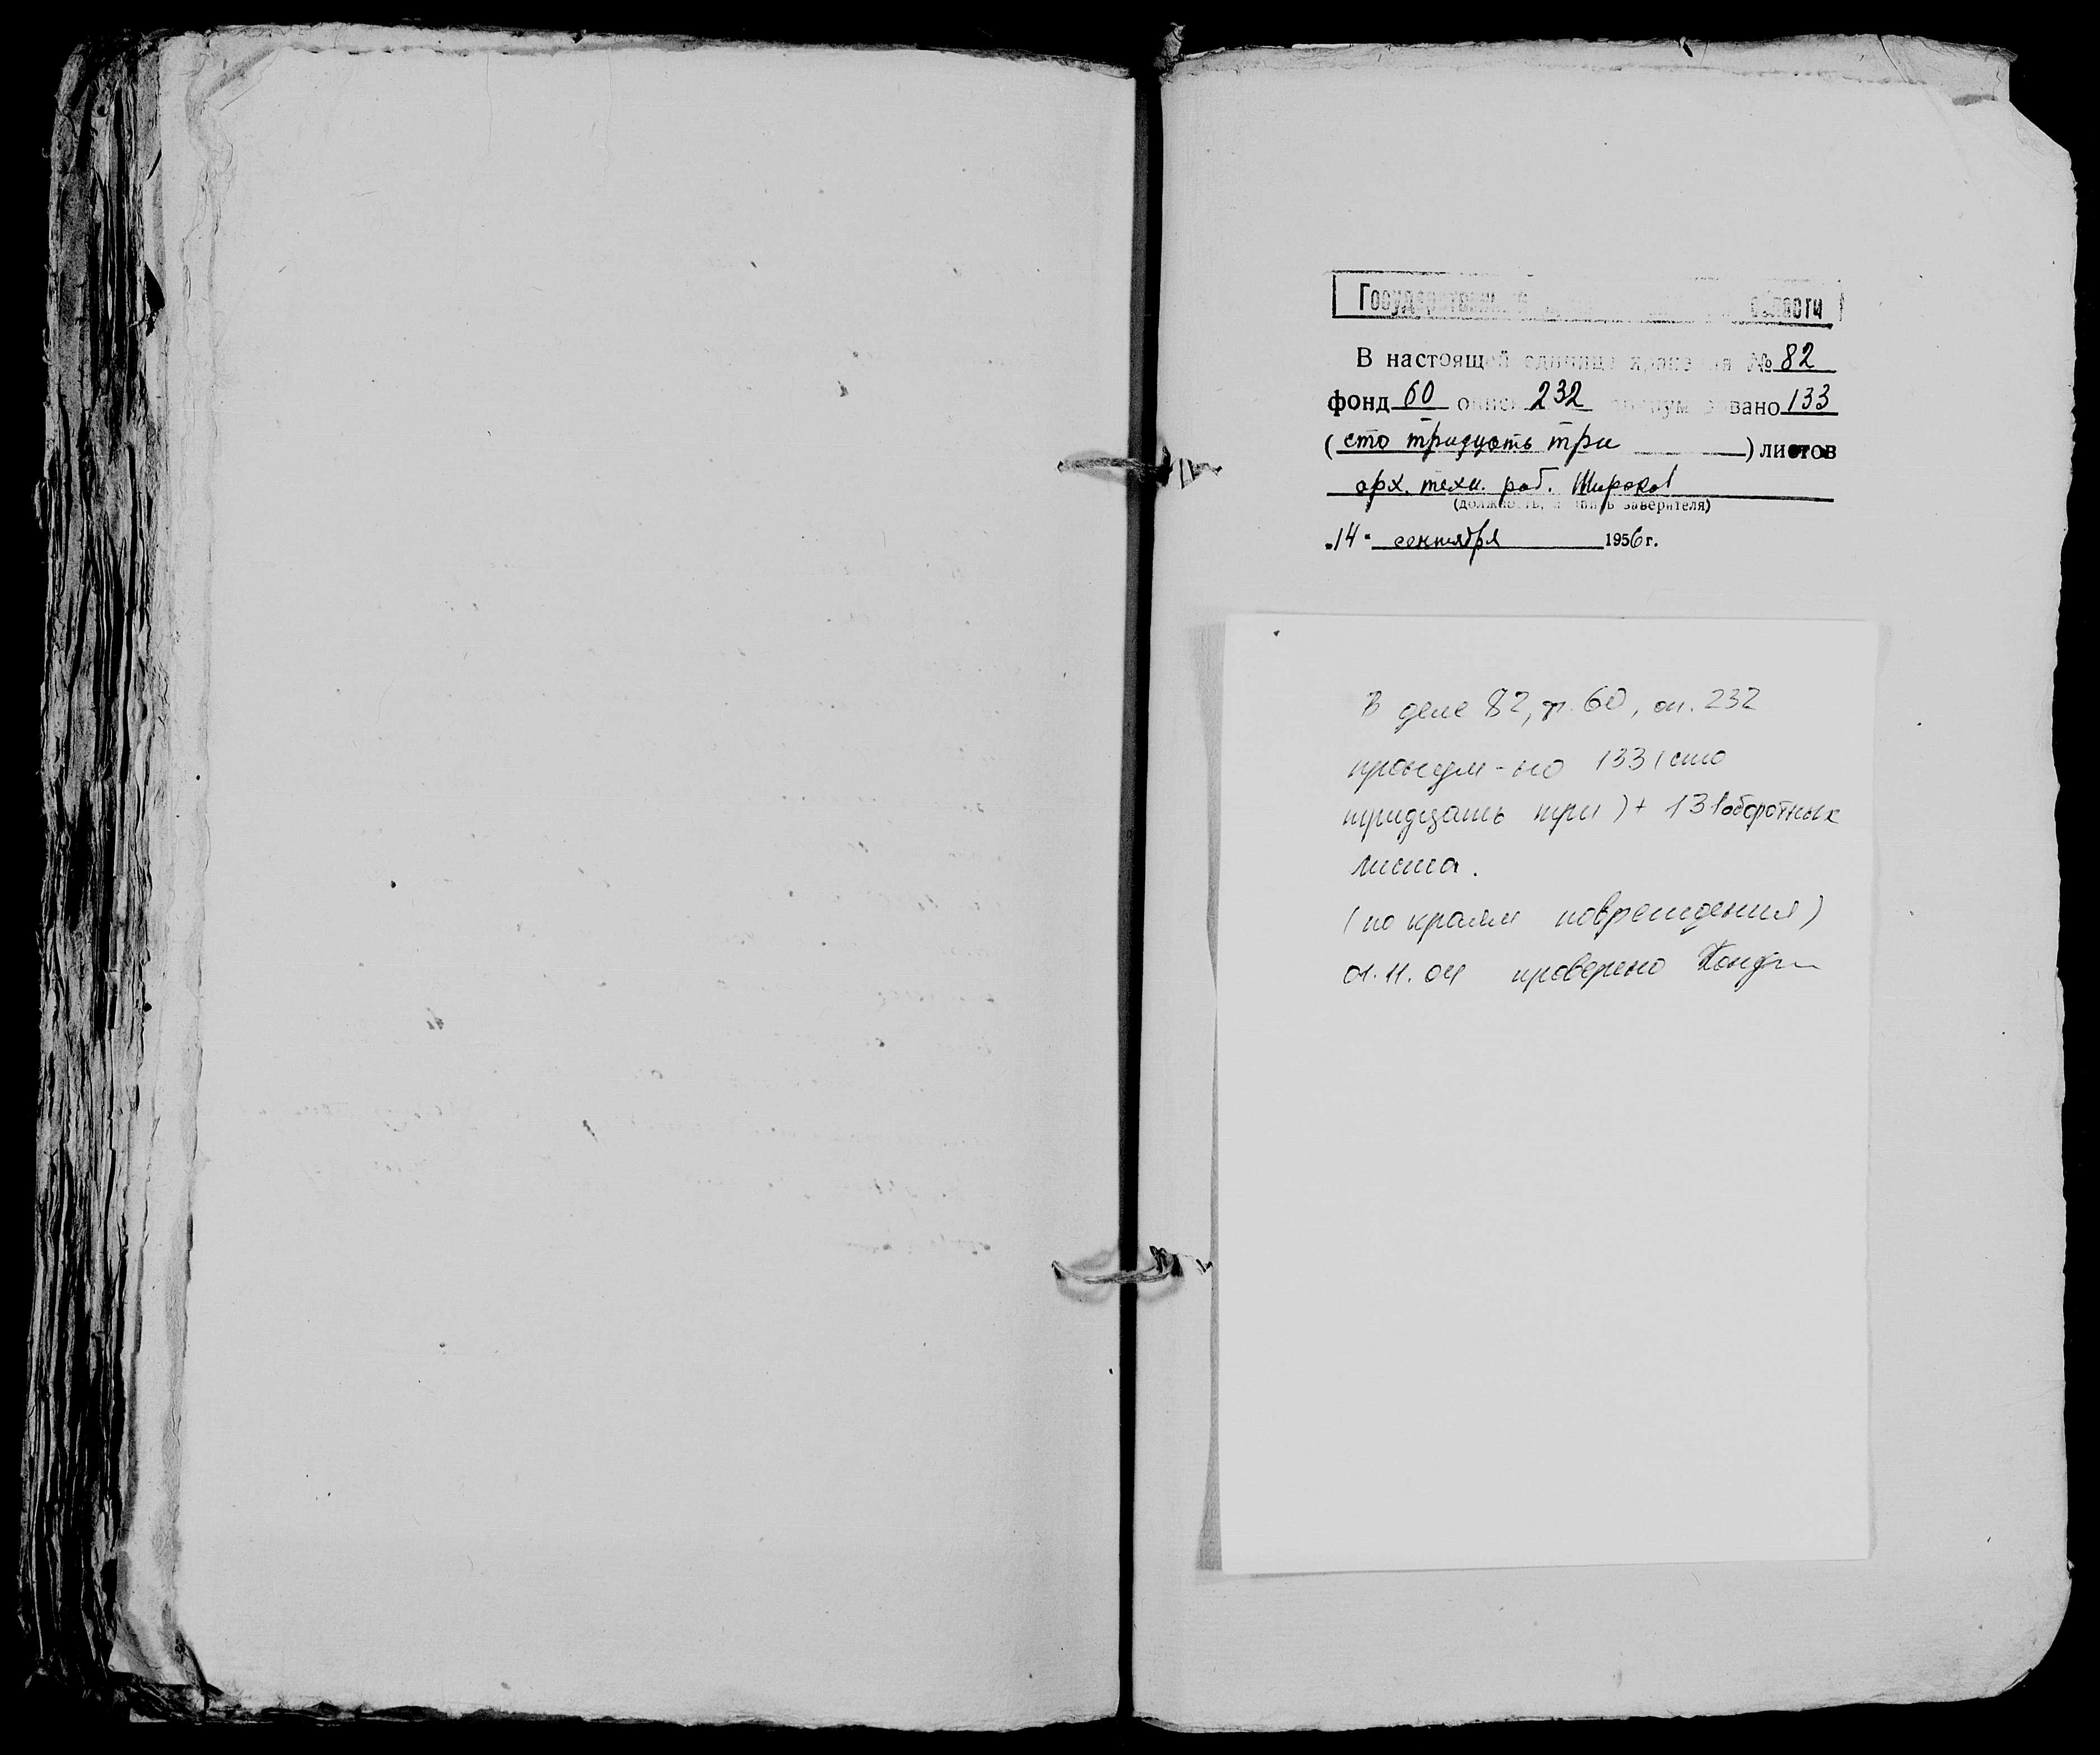 Государственный области
В настоящей единице хранения № 82
фонд 60 опись 232 пронумеровано 133
(сто тридцать три) листов
арх. техн. раб. Широков
(должность, подпись заверителя)
"14" сентября 1956 г.
В деле 82, ф. 60, оп. 232
пронум-но 133 (сто
тридцать три) + 131 оборотных
листа.
(по краям повреждения)
01.11.04 проверено